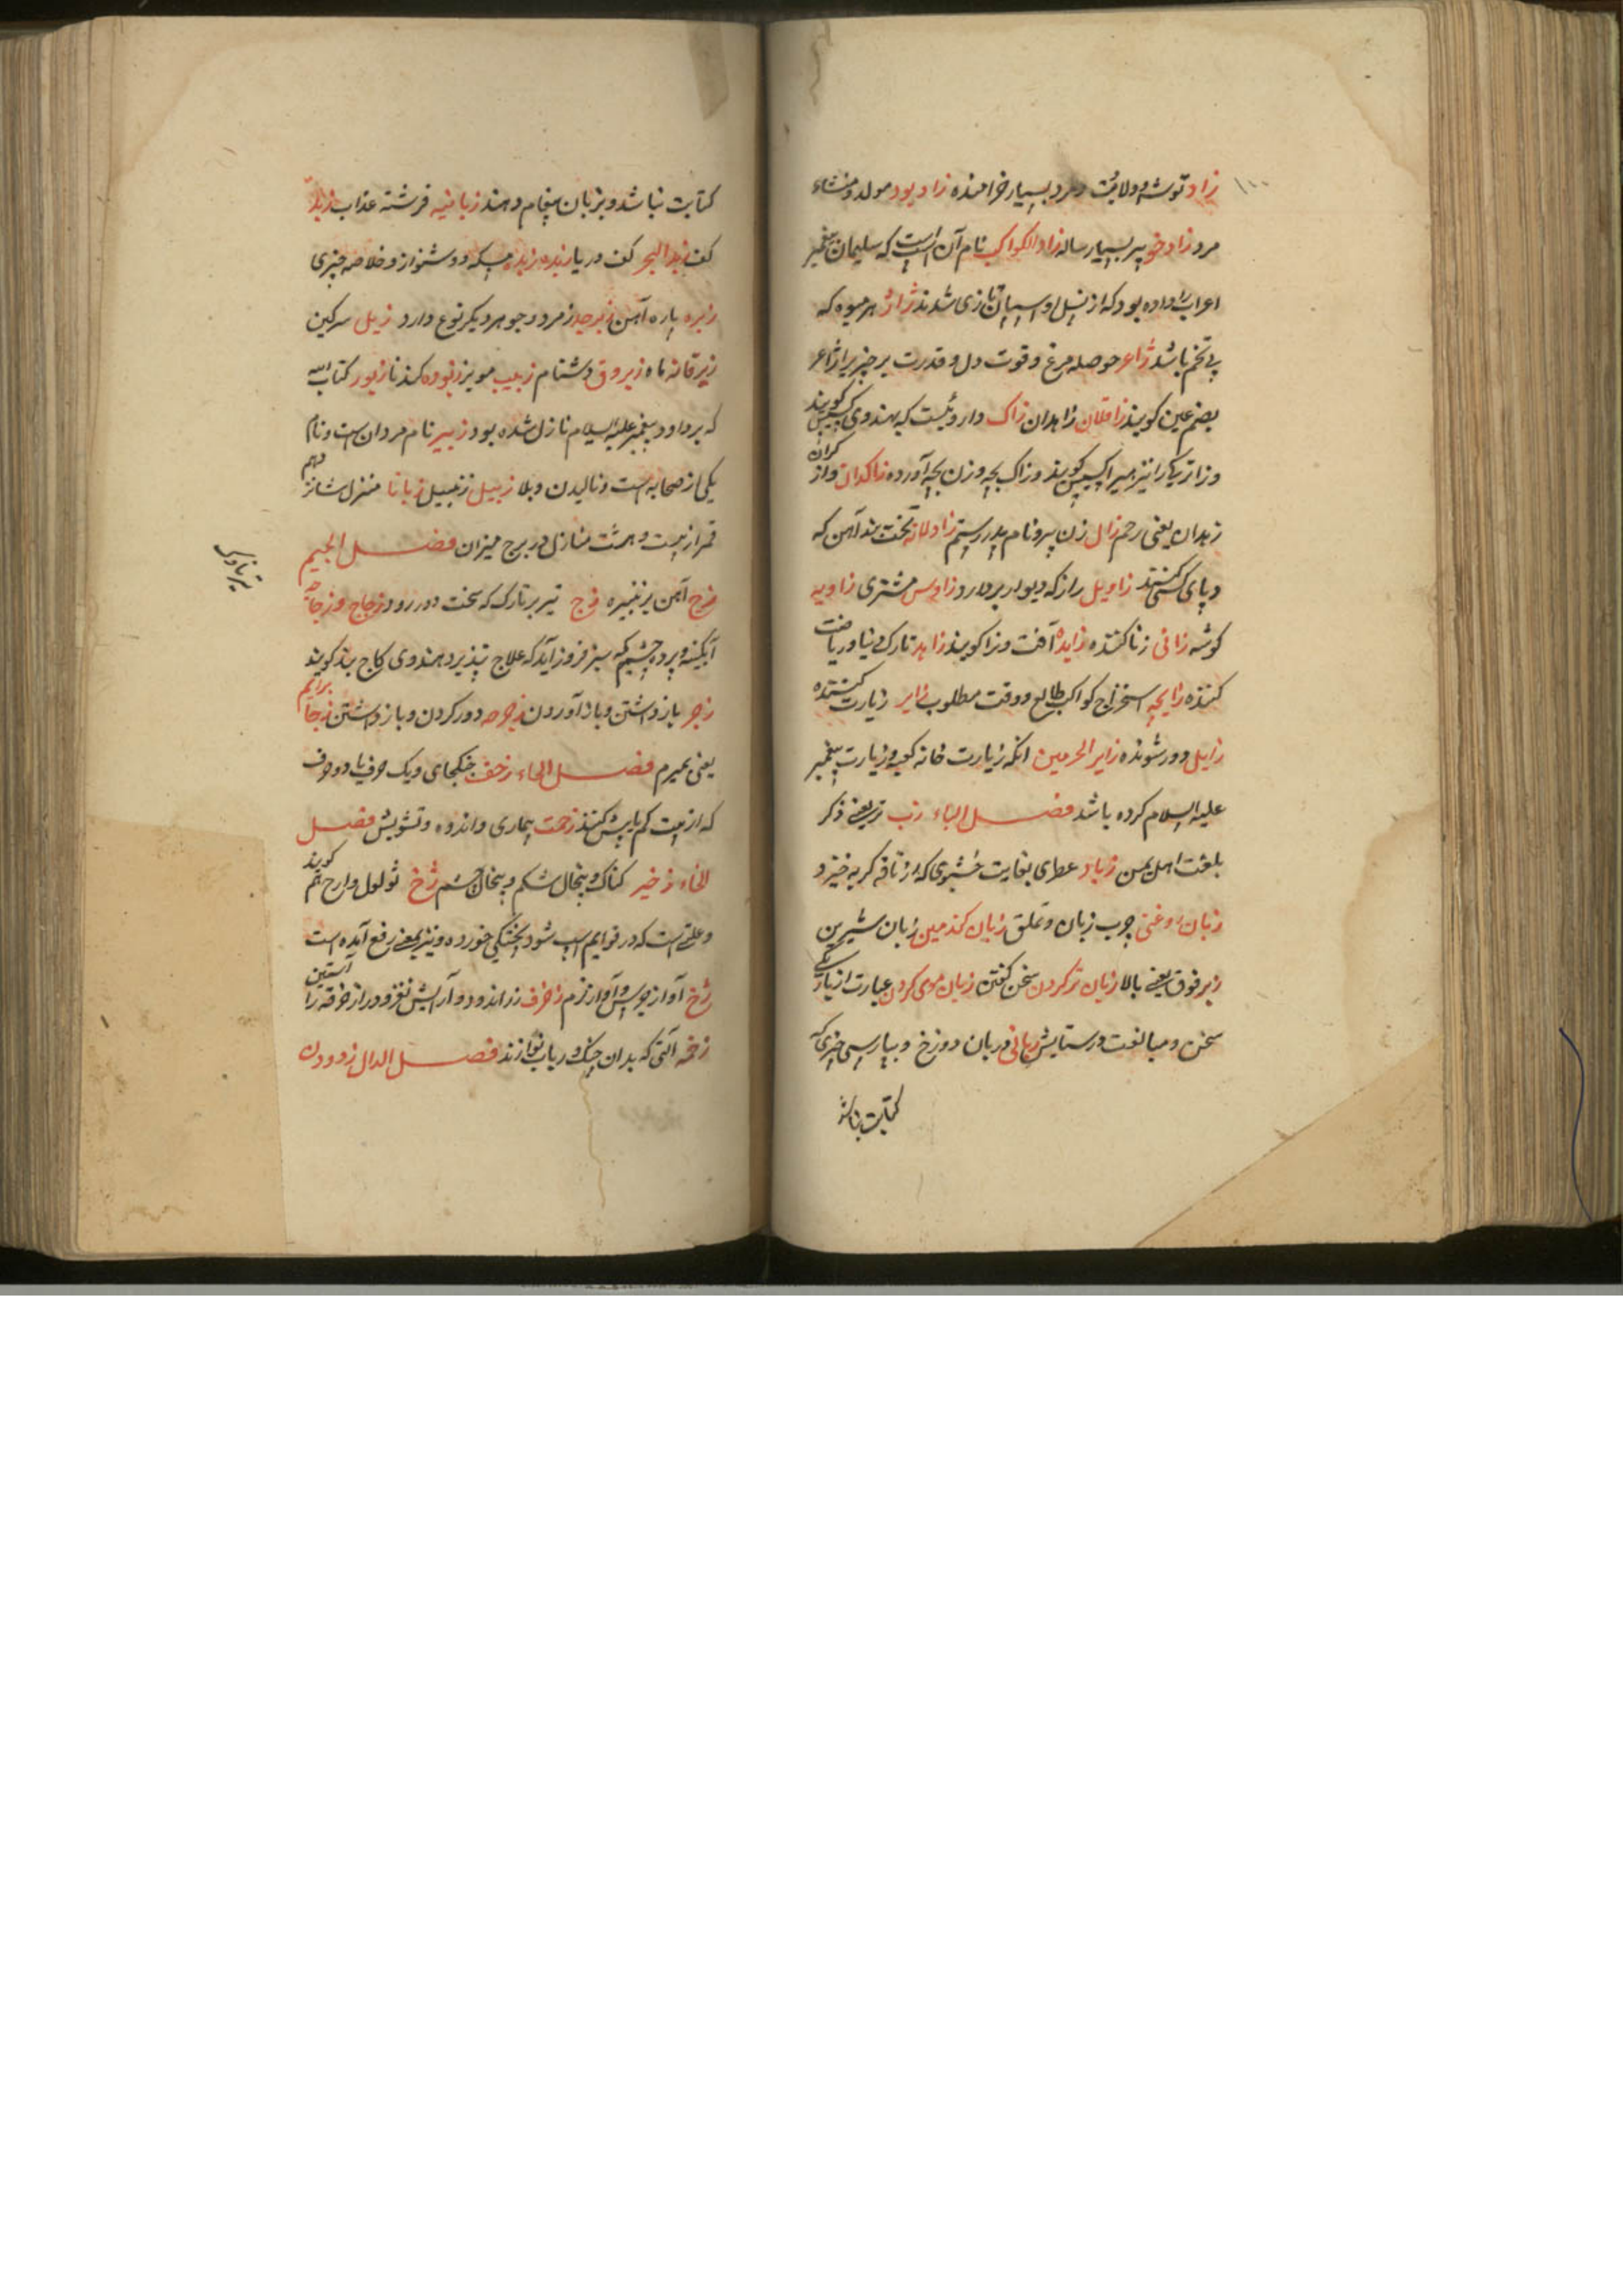 زاد توشه و ولایت و مرد بسیار خراننده زاد بود مولد و منشاء
مرد زاد خو پیر بسیار ساله زاد الکواکب نام آن اسپ است که سلیمان پیغمبر
اعراب را داده بود که از نسل او اسپان تازی شدند ژاژ هر میوه که
بی تخم باشد ژاغر حوصله مرغ و قوت دل و قدرت بر چیز
بضم غین کویند زاقلان زاهدان زاک داروئیست که بهندوی کسیس کویند
و از ترکی را نیز هیرا کسیس کویند و زاک بچه و زن بچه آورده زاکدان
زهدان یعنی رحم زال زن پیر و نام پدر رستم زاولانه تخت بند آهن که
در پای کشند زاویل راز که دیوار بردارد زاوس مشتری زاویه
کوشه زانی زنا کننده زایده آفت و زا کویند زاهد تارک دنیا و ریاضت
کننده زایچه استخراج کواکب طالع و وقت مطلوب زایر زیارت کننده
زایل دور شونده زایر الحرمین انکه زیارت خانه کعبه و زیارت پیغمبر
علیه السلام کرده باشد فصل الباء زب یعنی ذکر
بلغت اهل یمن زباد عطری بغایت خشبوی که از نافه کربه خیزد
زبان روغنی چرب زبان و تملق زبان کندمین زبان شیرین
زبر فوق یعنی بالا زبان تر کردن سخن کفتن زبان موی کردن عبارت از
سخن و مبالغت در ستایش زبانی دربان دوزخ و بپارسی خبری که
کتابت نباشد
کتابت نباشد و بزبان پیغام دهند زبانیه فرشته عذاب زبد
کف زبد البحر کف دریا زبده زبده مسکه و شنواز و خلاصه چیزی
زبره پاره آهن زبرجد زمرد و جوهر دیکر نوع دارد زبل سرکین
زبرقان ماه دشنام زبیب مویز زبور کتاب الله
که بر داود پیغمبر علیه السلام نازل شده بود زبیر نام مردان است و نام
یکی از صحابه است و نالیدن و بلا زبیل زنبیل زبانا منزل شانزدهم
قمر از بیست و هشت منازل در برج میزان فصل الجیم
زج آهن بن نیزه زج تیر بر تارک که سخت دور رود زجاج و زجاجه
آبکینه و پرده چشم که سبز فروز آید که علاج نپذیرد هندوی کاج بند کویند
زجر باز داشتن و باز آوردن دور کردن و باز داشتن
یعنی بمیرم فصل الحاء زحف جنکجای و یک حرف یا دو حرف
که از بیت کم یا بیش کنند زحمت بیماری و اندوه و تشویش فصل
الخاء زخیر کناک و پنجال شکم و پنجال چشم زخ ثولول و ارح هم کویند
و علتی است که در قوایم اسپ شود و خوره و نیز بمعنی رفع آمده است
ژخ آواز جرس و آواز نرم زخرف زر اندود و آرایش نغز و دراز خرقه را آستین
زخمه آلتی که بدان چنک و رباب نوازند فصل الدال زدودن
تیر ناوک